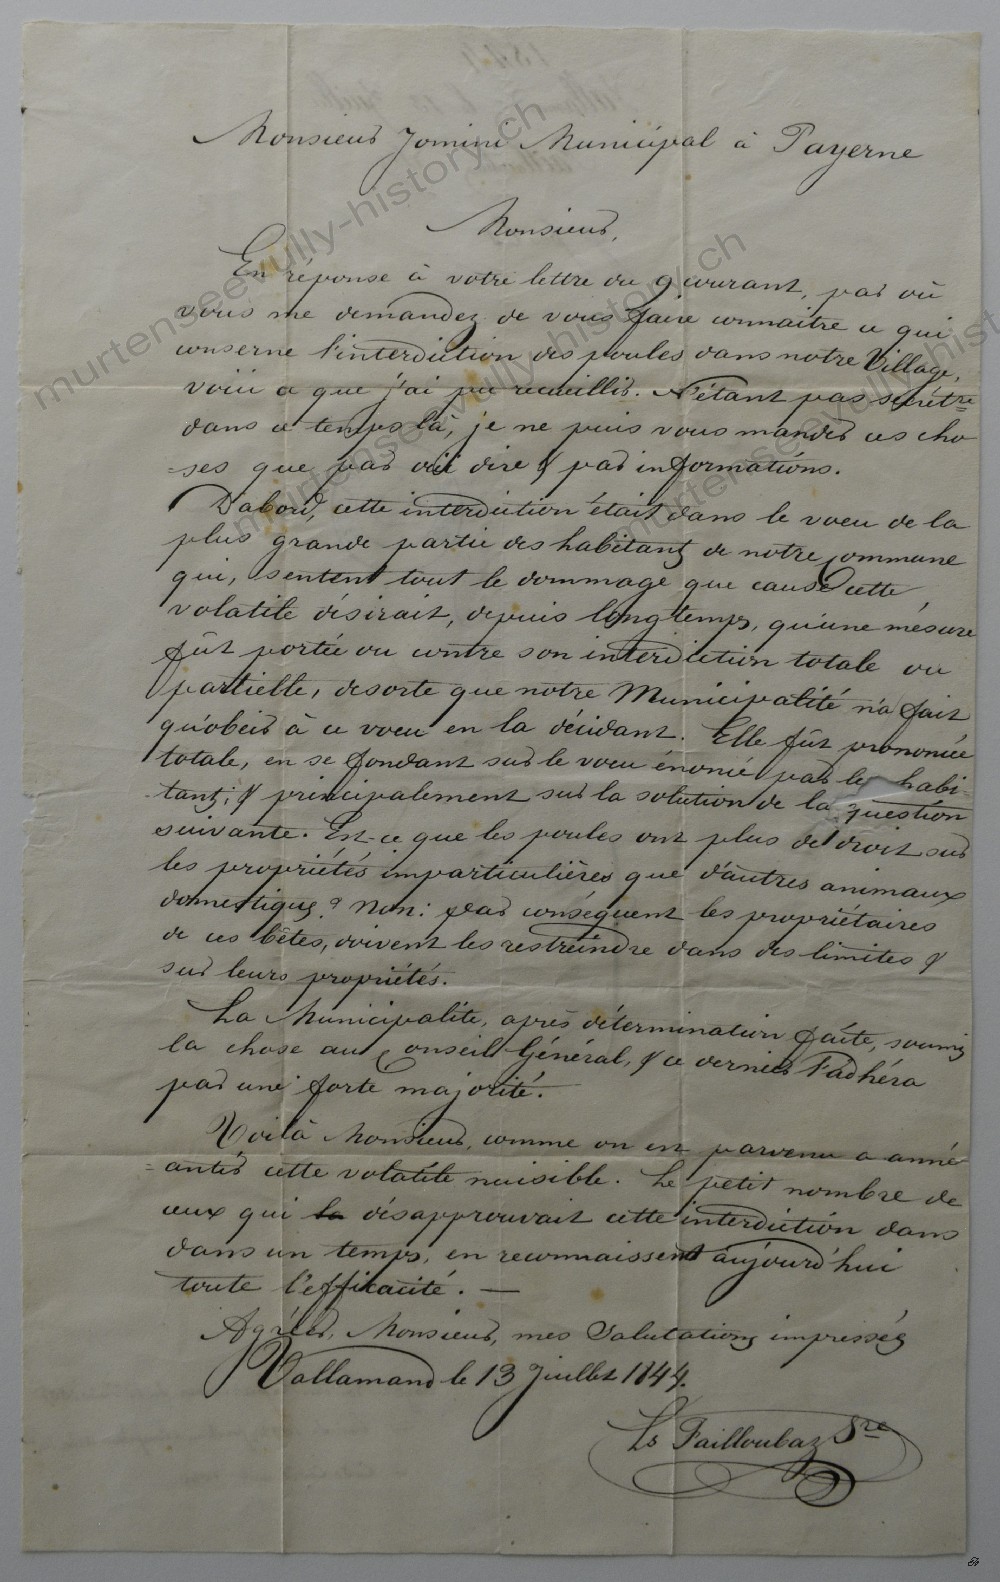 Monsieur Jomini Municipal à Payerne
Monsieur,
En réponse à votre lettre du 9 courant, par où
vous me demandez de vous faire connaitre ce qui
conserne l'interdiction des poules dans notre Village,
voiii ce que j'ai pu recueillir. N'étant pas secrétre
dans ce temps là, je ne puis vous mander ces cho
=ses que par oüi dire & par informations.
D'abord, cette interdiction était dans le voeu de la
plus grande partie des habitants de notre commune
qui, sentent tout le dommage que cause cette
volatile désirait, depuis longtemps, qu'une mésure
fût portée ou contre son interdiction totale ou
partielle, desorte que notre Municipalité n'a fait
qu'obéir à ce voeu en la décidant. Elle fût prononcée
totale, en se fondant sur le voeu énoncé par les habi-
tants; & principalement sur la solution de la question
suivante. Est-ce que les poules ont plus de droit sur
les propriétés imparticulières que d'autres animaux
domestiques? Non: par conséquent les propriétaires
de ces bêtes, doivent les restreindre dans des limites &
sur leurs propriétés.
La Municipalite, après détermination faite, soumis
la chose au Conseil Général, & ce dernier l'adhéra
par une forte majorité.
Voilà Monsieur, comme on est parvenu a ané
=antir cette volatile nuisible. Le petit nombre de
ceux qui la désapprouvait cette interdiction dans
dans un temps, en reconnaissent aujourd'hui
toute l'efficacité. —
Agréer, Monsieur, mes Salutations impressés
Vallamand le 13 Juillet 1844.
Ls Failloubaz Sre
murtenseevully-history.ch
murtenseevully-history.ch
murtenseevully-hist